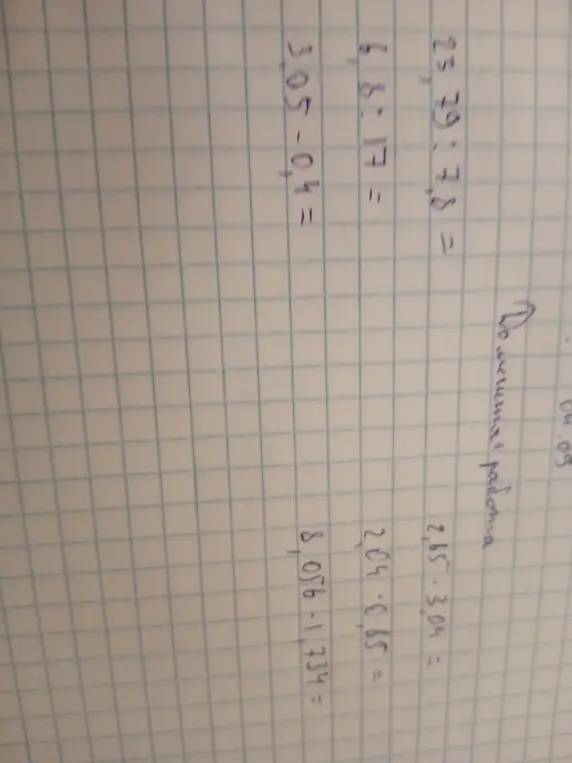 04.09
Домашняя работа
23,79 : 7,8 =
2,65 · 3,04 =
6,8 : 17 =
2,04 · 6,65 =
3,05 - 0,4 =
8,056 - 1,734 =